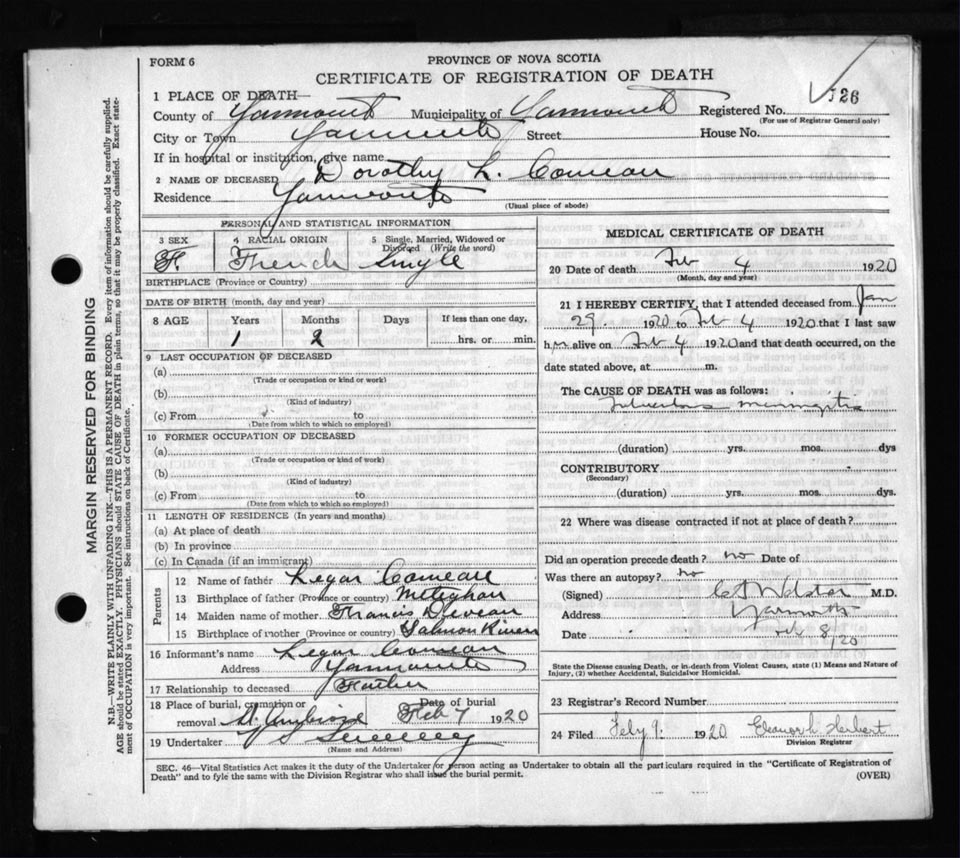 FORM 6
PROVINCE OF NOVA SCOTIA
CERTIFICATE OF REGISTRATION OF DEATH
1 PLACE OF DEATH—
County of Yarmouth Municipality of Yarmouth Registered No. 526
(For use of Registrar General only)
City or Town Yarmouth Street House No.
If in hospital or institution, give name
2 NAME OF DECEASED Dorothy L. Comeau
Residence Yarmouth
(Usual place of abode)
PERSONAL AND STATISTICAL INFORMATION
3 SEX
F.
4 RACIAL ORIGIN
French
5 Single, Married, Widowed or
Divorced (Write the word)
Single
BIRTHPLACE (Province or Country)
DATE OF BIRTH (month, day and year)
8 AGE Years Months Days If less than one day,
1 2 hrs. or min.
9 LAST OCCUPATION OF DECEASED
(a)
(Trade or occupation or kind or work)
(b)
(Kind of industry)
(c) From to
(Date from which to which so employed)
10 FORMER OCCUPATION OF DECEASED
(a)
(Trade or occupation or kind of work)
(b)
(Kind of industry)
(c) From to
(Date from which to which so employed)
11 LENGTH OF RESIDENCE (In years and months)
(a) At place of death
(b) In province
(c) In Canada (if an immigrant)
Parents
12 Name of father Legar Comeau
13 Birthplace of father (Province or country) Meteghan
14 Maiden name of mother Francis Deveau
15 Birthplace of mother (Province or country) Salmon River
16 Informant's name Legar Comeau
Address Yarmouth
17 Relationship to deceased Father
18 Place of burial, cremation or Date of burial
removal St. Ambrose Feb 7 1920
19 Undertaker Sweeney
(Name and Address)
MEDICAL CERTIFICATE OF DEATH
20 Date of death Feb 4 1920
(Month, day and year)
21 I HEREBY CERTIFY, that I attended deceased from Jan
29. 1920 to Feb 4 1920 that I last saw
h alive on Feb 4 1920 and that death occurred, on the
date stated above, at m.
The CAUSE OF DEATH was as follows:
meningitis
(duration) yrs. mos. dys
CONTRIBUTORY
(Secondary)
(duration) yrs. mos. dys.
22 Where was disease contracted if not at place of death?
Did an operation precede death? no Date of
Was there an autopsy? no
(Signed) M.D.
Address Yarmouth
Date Feb 8, 20
State the Disease causing Death, or in-death from Violent Causes, state (1) Means and Nature of
Injury, (2) whether Accidental, Suicidal or Homicidal.
23 Registrar's Record Number
24 Filed Feby 9. 1920 Eleanor L. Herbert
Division Registrar
SEC. 46—Vital Statistics Act makes it the duty of the Undertaker or person acting as Undertaker to obtain all the particulars required in the "Certificate of Registration of
Death" and to fyle the same with the Division Registrar who shall issue the burial permit.
(OVER)
MARGIN RESERVED FOR BINDING
N.B.—WRITE PLAINLY WITH UNFADING INK—THIS IS A PERMANENT RECORD. Every item of information should be carefully supplied.
AGE should be stated EXACTLY. PHYSICIANS should STATE CAUSE OF DEATH in plain terms, so that it may be properly classified. Exact state-
ment of OCCUPATION is very important. See instructions on back of Certificate.